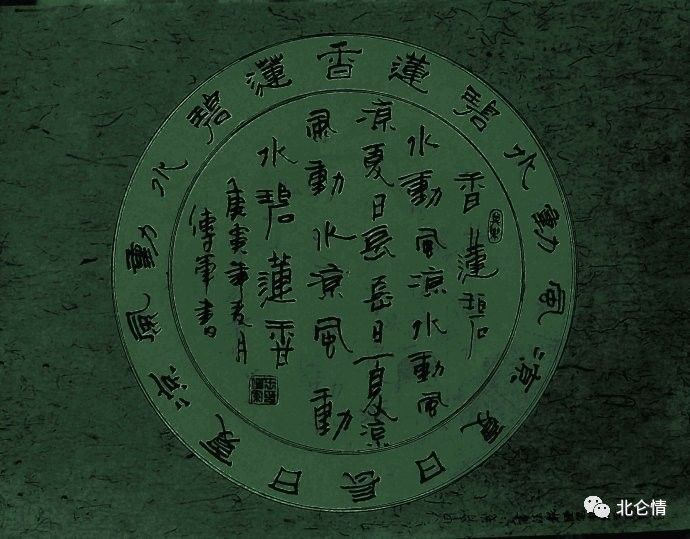 香蓮碧水動風涼夏日長日夏涼風動水碧蓮
香蓮碧
水動風涼水動風
涼夏日長長日夏涼
風動水涼風動
水碧蓮香
庚寅夏月
傳軍書
北仑情